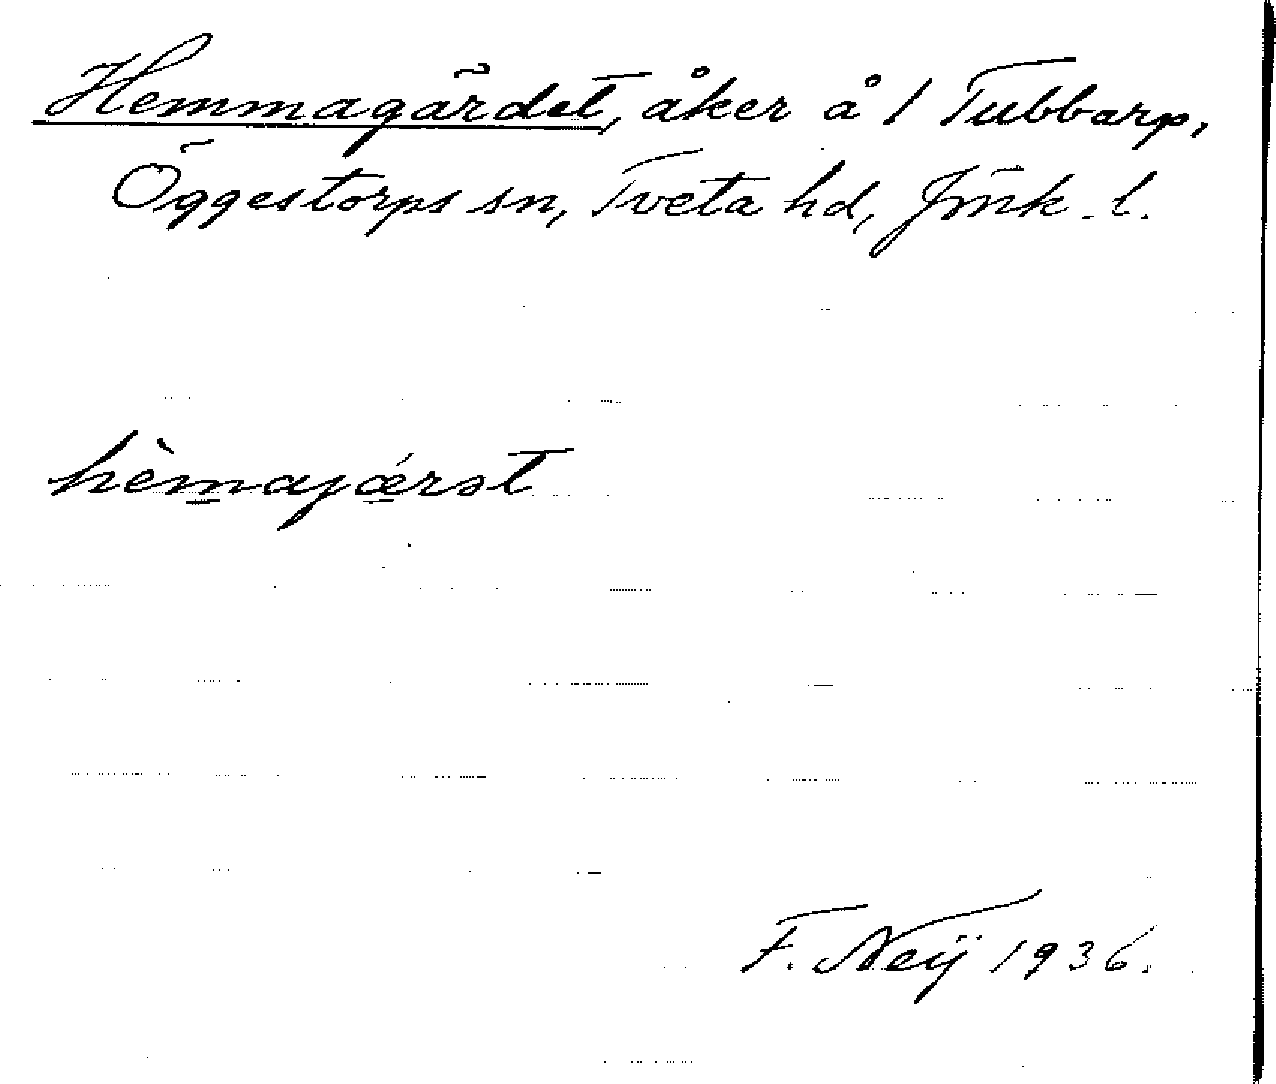 Hemmagärdet, åker å 1 Tubbarp,
Öggestorps sn, Tveta hd, Jmk. l.
hèmajǽrət
F. Neij 1936.